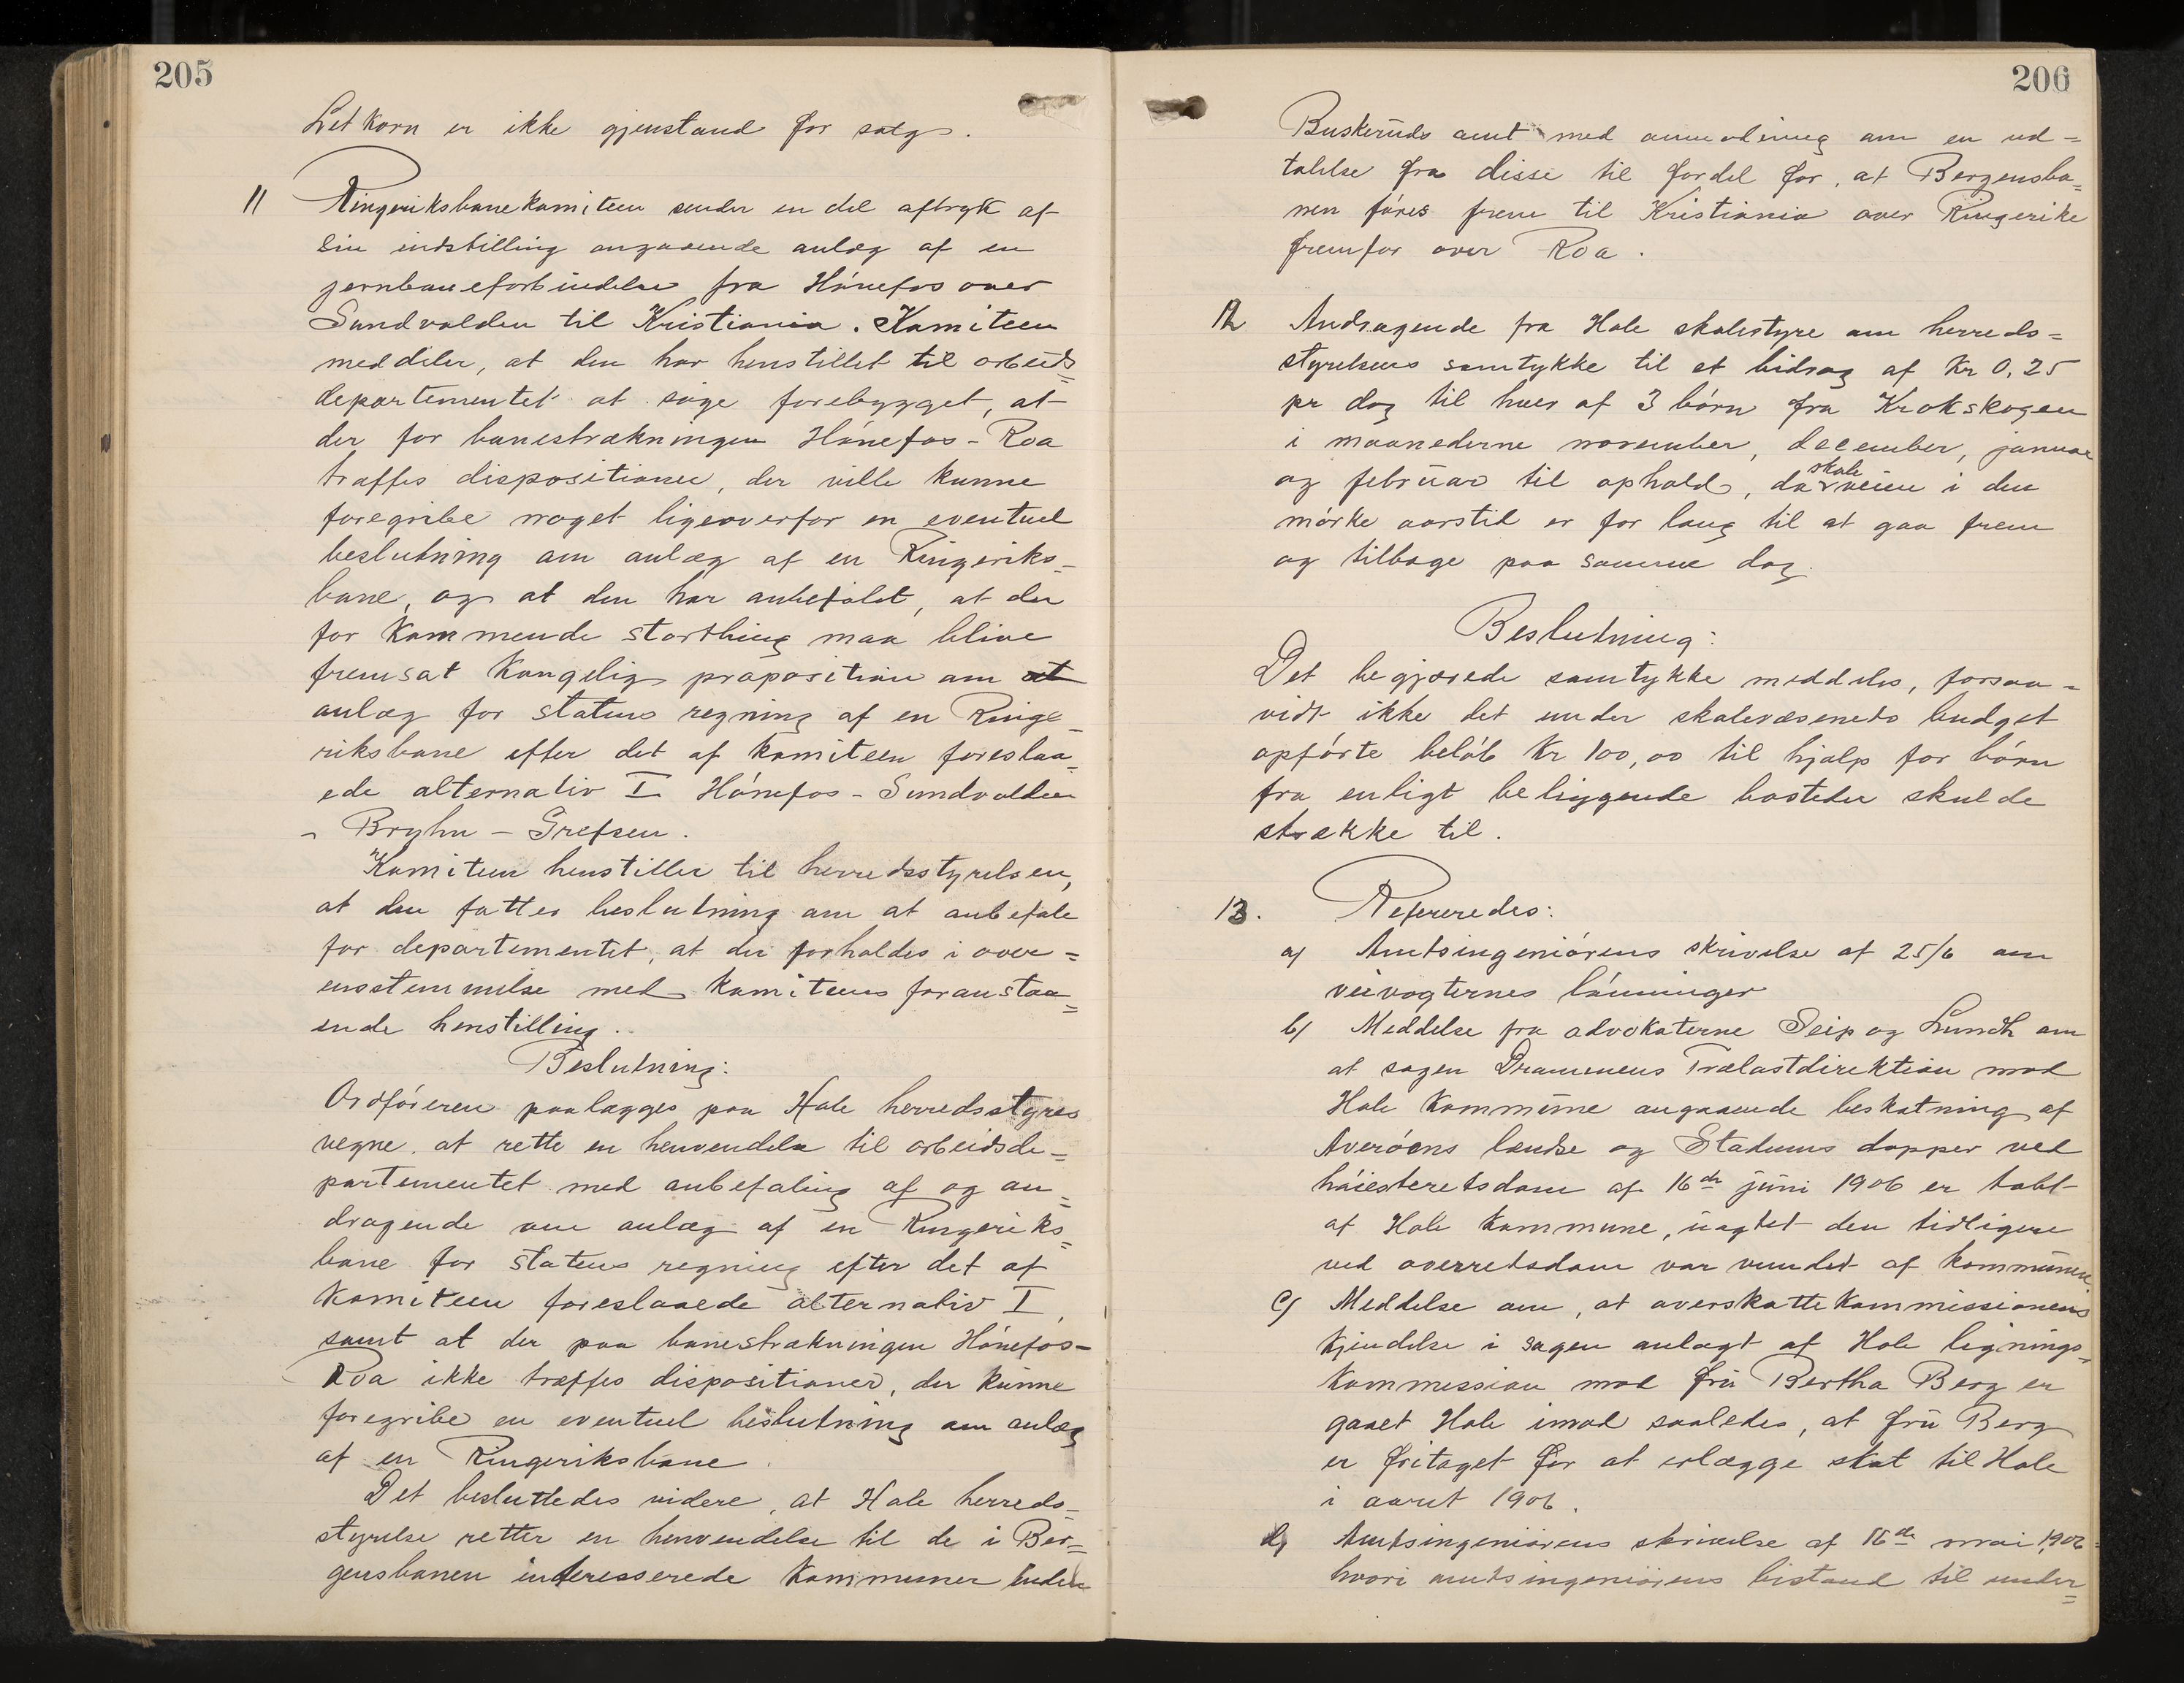 205
Letkorn er ikke gjenstand for salg.
11 Ringeriksbanekomiteen sender en del aftryk af
sin indstilling angaaende anlæg af en
jernbaneforbindelse fra Hónefos over
Sundvolden til Kristiania. Komiteen
meddeler, at den har henstillet til arbeids=
departementet at søge forebygget, at
der for banestrækningen Hónefos-Roa
træffes dispositioner, der ville kunne
foregribe noget ligeoverfor en eventuel
beslutning om anlæg af en Ringeriks=
bane, og at den har anbefalet, at der
for kommende storthing maa blive
fremsat kongelig proposition om at
anlæg for statens regning af en Ringe=
riksbane efter det af komiteen foreslaa=
ede alternativ I Hónefos-Sundvolden
- Bryhn - Grefsen.
Komiteen henstiller til herredsstyrelsen,
at den fatter beslutning om at anbefale
for departementet, at der forholdes i over=
ensstemmelse med komiteens foranstaa=
ende henstilling.
Beslutning:
Ordfóreren paalægges paa Hole herredsstyres
vegne at rette en henvendelse til arbeidsde=
partementet med anbefaling af og an=
dragende om anlæg af en Ringeriks=
bane for statens regning efter det af
komiteen foreslaaede alternativ I,
samt at der paa banestrækningen Hónefos-
Roa ikke træffes dispositioner, der kunne
foregribe en eventuel beslutning om anlæg
af en Ringeriksbane.
Det besluttedes videre, at Hole herreds=
styrelse retter en henvendelse til de i Ber=
gensbanen interesserede kommuner inden
206
Buskeruds amt med anmodning om en ud=
talelse fra disse til fordel for, at Bergensba=
nen fóres frem til Kristiania over Ringerike
fremfor over Roa.
12 Andragende fra Hole skolestyre om herreds=
styrelsens samtykke til et bidrag af Kr 0.25
pr dag til hver af 3 bórn fra Krokskogen
i maanederne november, december, januar
og februar til ophold, da skoleveien i den
mórke aarstid er for lang til at gaa frem
og tilbage paa samme dag.
Beslutning:
Det begjærede samtykke meddeles, forsaa=
vidt ikke det under skolevæsenets budget
opfórte belób Kr 100,00 til hjælp for bórn
fra enligt beliggende bosteder skulde
strække til.
13. Refereredes:
a) Amtsingeniórens skrivelse af 25/6 om
veivogternes lónninger
b) Meddelse fra advokaterne Seip og Lundh om
at sagen Drammens Trælastdirektion mod
Hole kommune angaaende beskatning af
Averóens lændse og Stadums dopper ved
hóiesteretsdom af 16de juni 1906 er tabt
af Hole kommune, uagtet den tidligere
ved overretsdom var vundet af kommunen
c) Meddelse om, at overskattekommissionens
kjendelse i sagen anlagt af Hole lignings=
kommission mod fru Bertha Berg er
gaaet Hole imod saaledes, at fru Berg
er fritaget for at erlægge skat til Hole
i aaret 1906.
d) Amtsingeniórens skrivelse af 16de mai 1906
hvori amtsingeniórens bistand til under=